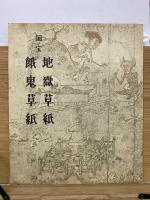 国宝
地獄草紙
餓鬼草紙